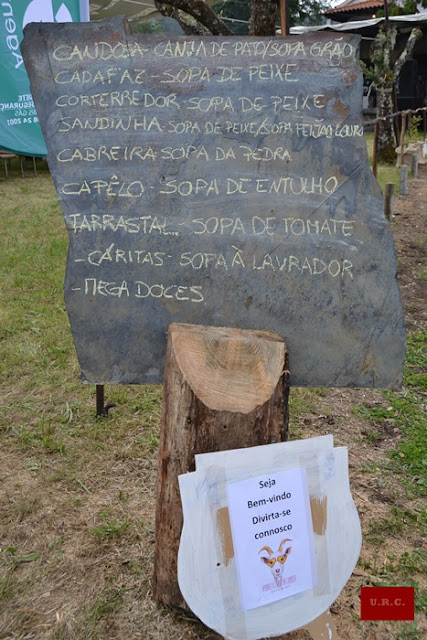 CANDOSA - CANJA DE PATO/SOPA GRÃO
CADAFAZ - SOPA DE PEIXE
CORTERREDOR - SOPA DE PEIXE
SANDINHA - SOPA DE PEIXE/SOPA FEIJÃO
CABREIRA - SOPA DA PEDRA
CAPÊLO - SOPA DE ENTULHO
TARRASTAL - SOPA DE TOMATE
- CÁRITAS - SOPA À LAVRADOR
- MEGA DOCES
Seja
Bem-vindo
Divirta-se
connosco
U.R.C.